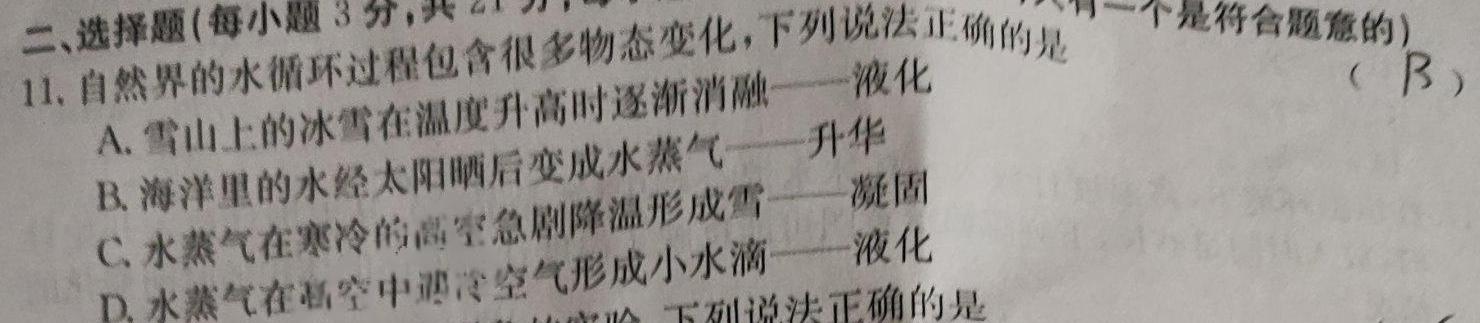 二、选择题(每小题 3 分,共 21 分, 一个是符合题意的)
11. 自然界的水循环过程包含很多物态变化,下列说法正确的是 ( B )
A. 雪山上的冰雪在温度升高时逐渐消融——液化
B. 海洋里的水经太阳晒后变成水蒸气——升华
C. 水蒸气在寒冷的高空急剧降温形成雪——凝固
D. 水蒸气在高空中遇冷空气形成小水滴——液化
实验,下列说法正确的是